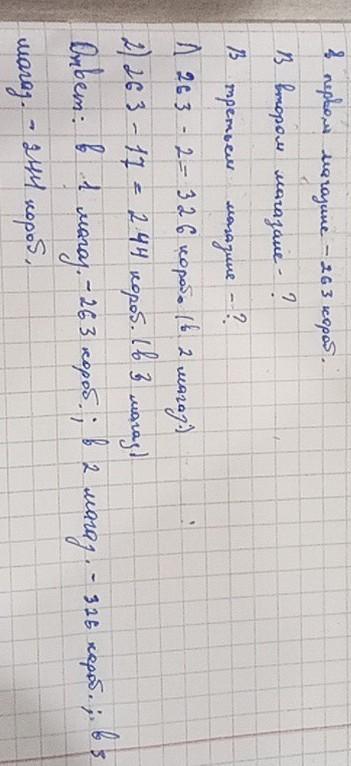 В первом магазине - 263 короб.
В втором магазине - ?
В третьем магазине - ?
1) 263 - 2 = 326 короб. (в 2 магаз.)
2) 263 - 17 = 244 короб. (в 3 магаз)
Ответ: в 1 магаз. - 263 короб.; в 2 магаз. - 326 короб.; в 3
магаз. - 244 короб.